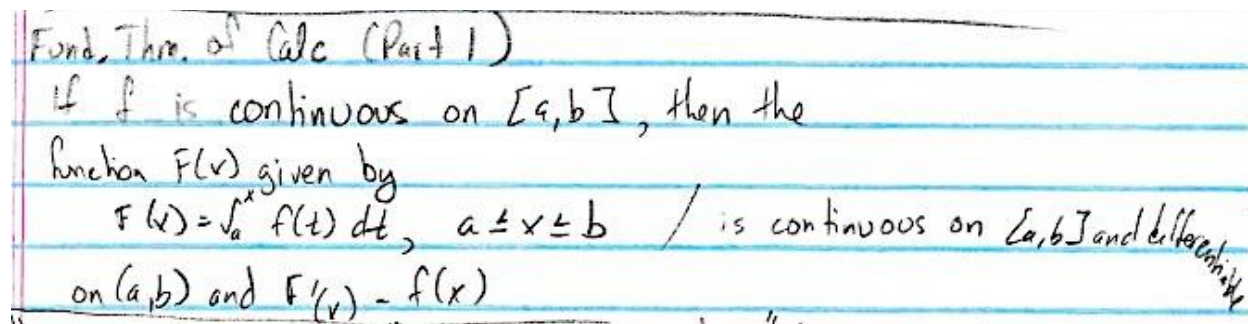 Fund. Thm. of Calc (Part 1)
If f is continuous on [a,b], then the
function F(x) given by
F(x)=∫ₐˣ f(t) dt, a ≤ x ≤ b / is continuous on [a,b] and differentiable
on (a,b) and F'(x) = f(x)